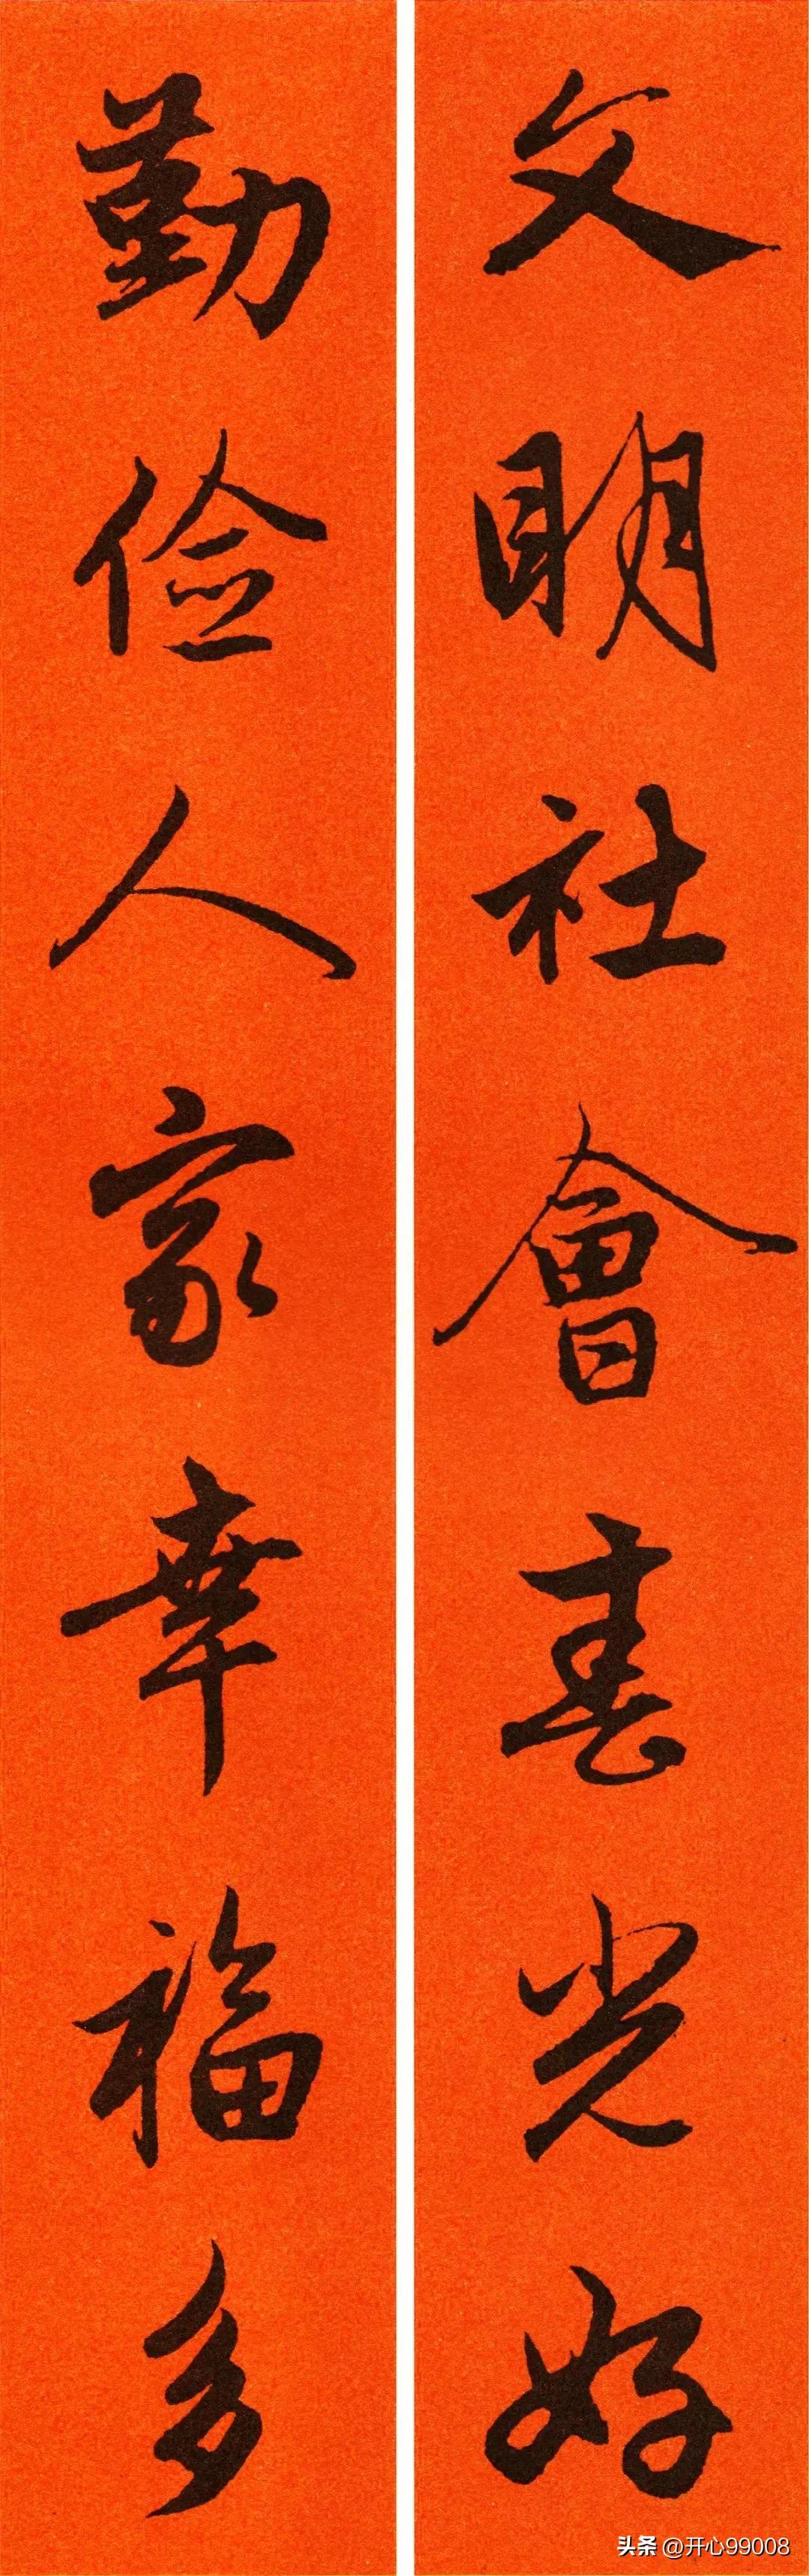 文明社會春光好
勤儉人家幸福多
头条 @开心99008